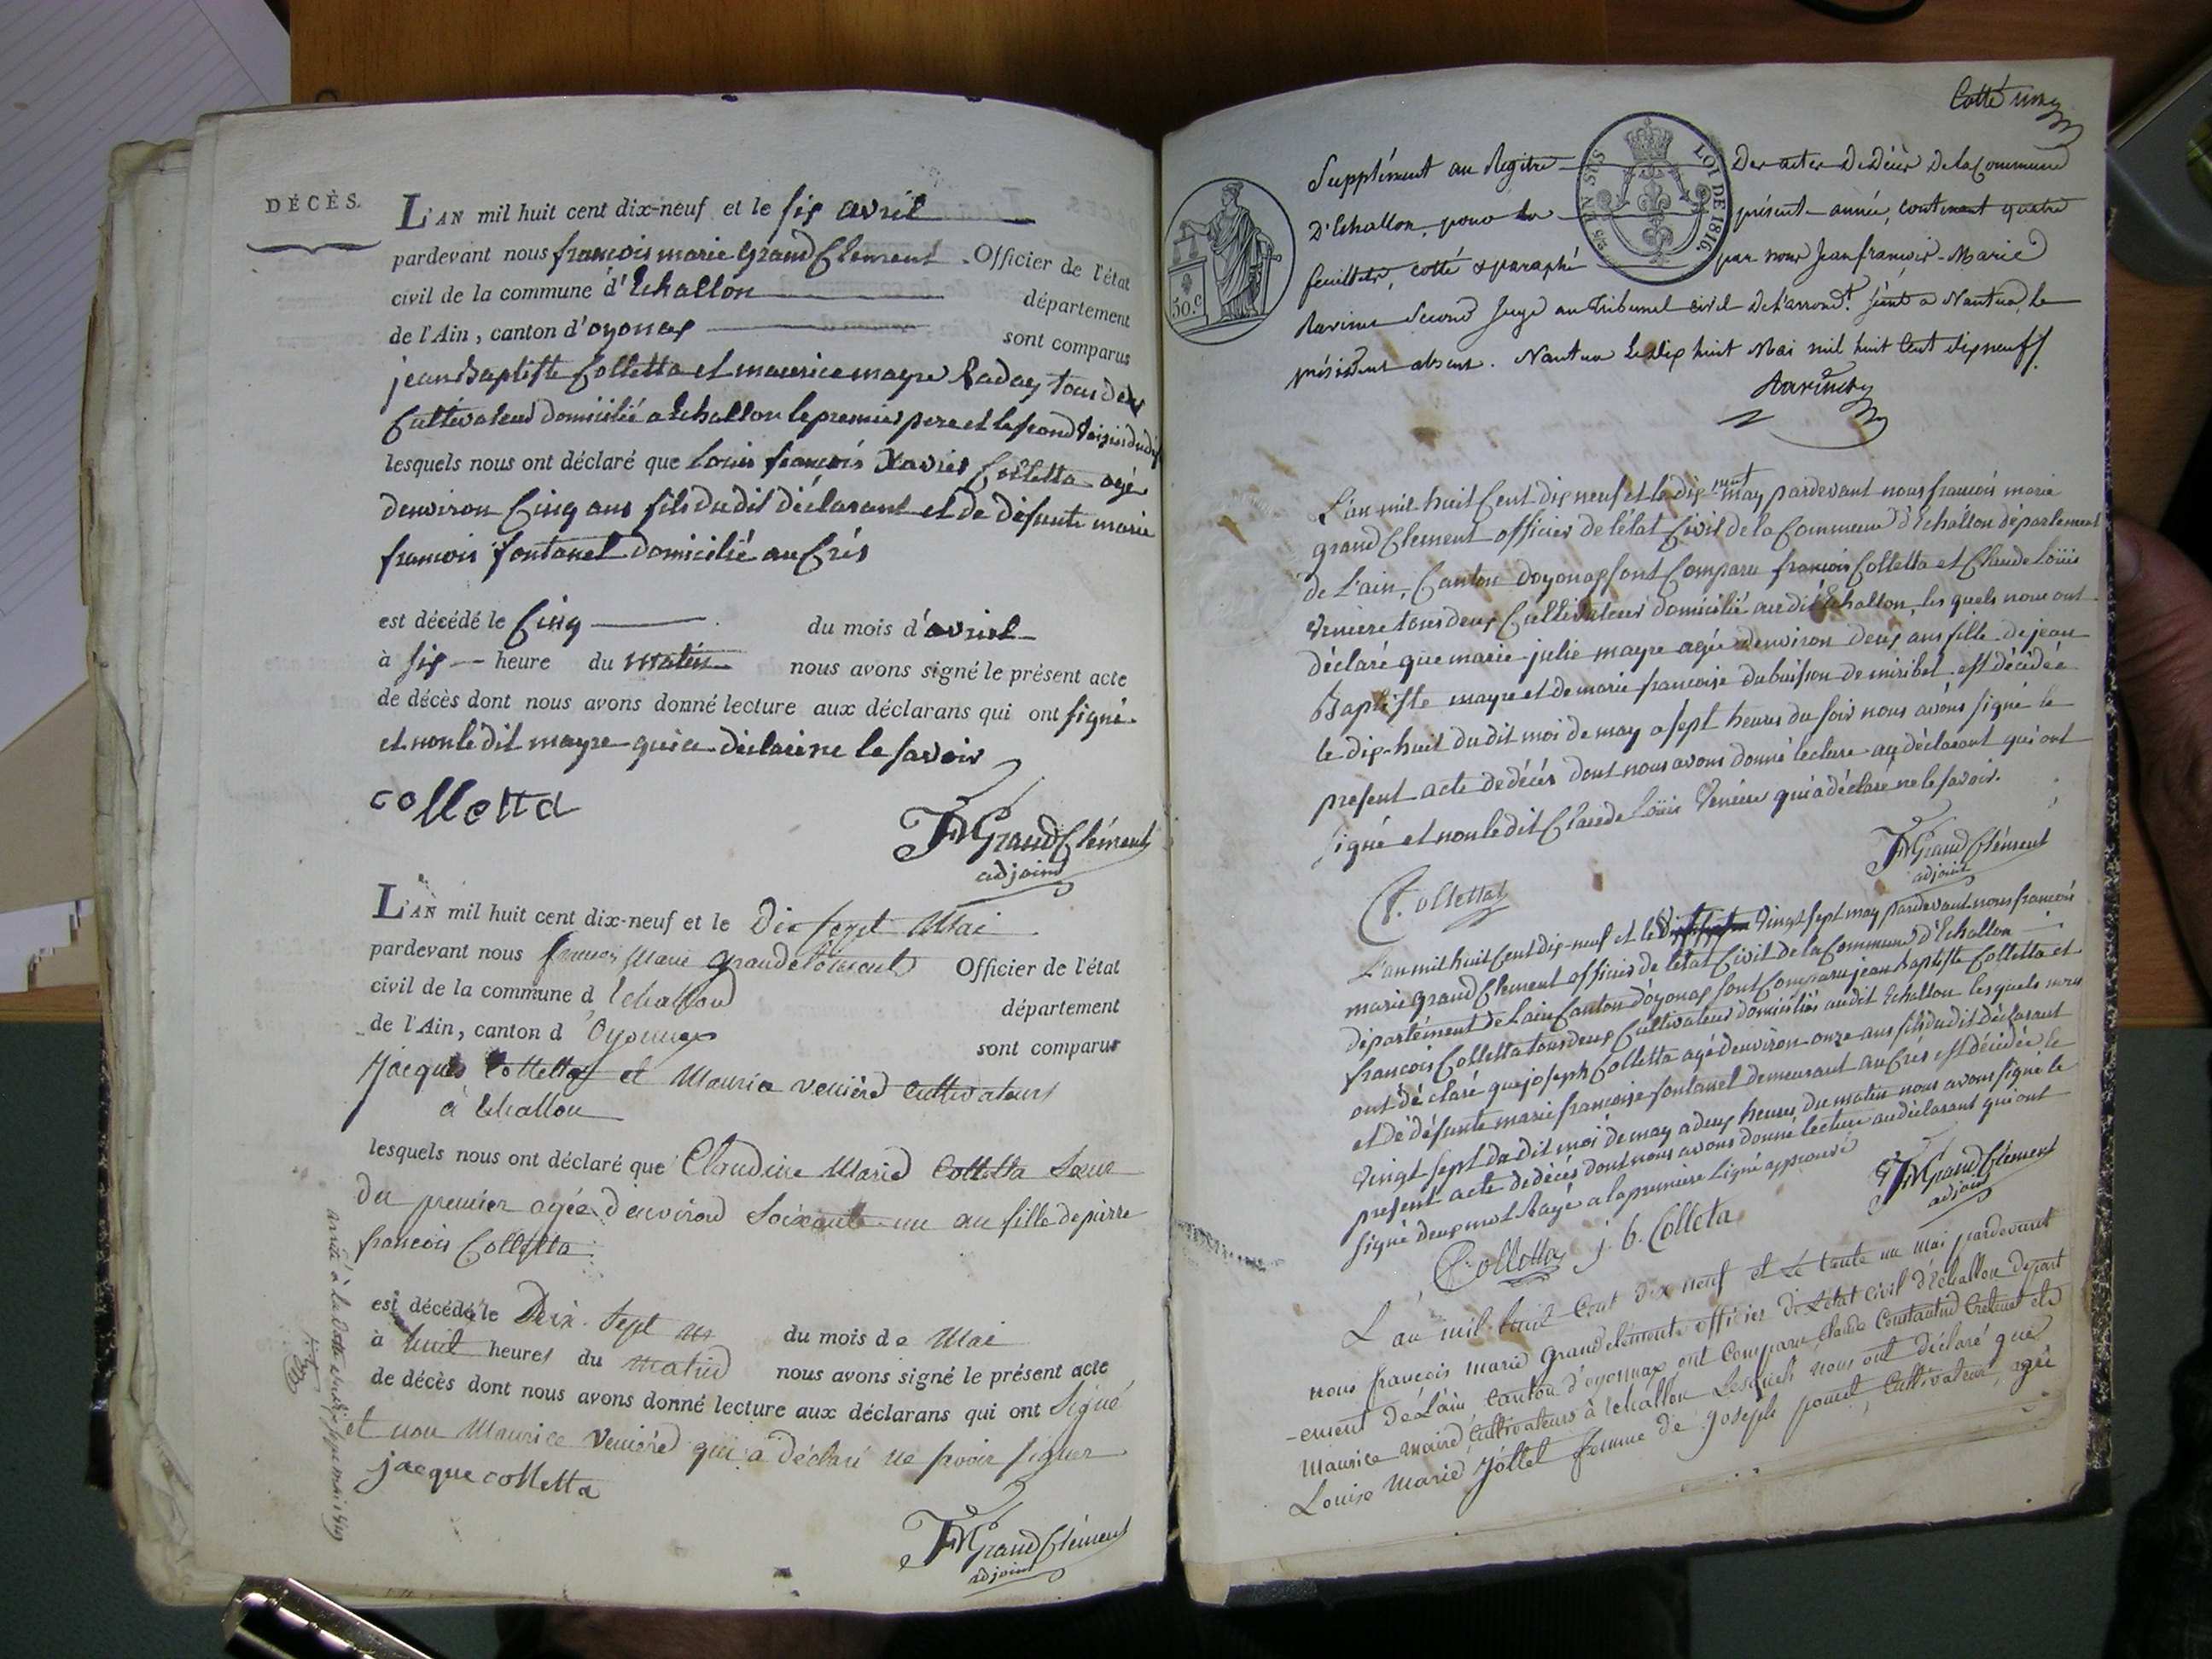 DÉCÈS.
L'AN mil huit cent dix-neuf et le six avril
pardevant nous francois marie Grand Clement Officier de l'état
civil de la commune d'Echallon département
de l'Ain, canton d'oyonax sont comparus
jean Baptiste Colletta et maurice mayre Baday tous deux
Cultivateur domicilié a Echallon le premier pere et le second voisin dudit
lesquels nous ont déclaré que louis francois Xavier Colletta agé
denviron Cinq ans fils du dit déclarant et de défunte marie
francois fontanel domicilié au Crés
est décédé le Cinq du mois d'avril
à six heure du matin nous avons signé le présent acte
de décès dont nous avons donné lecture aux déclarans qui ont signé
et non le dit mayre qui a déclaré ne le savoir
colletta
FMGrandClément
adjoint
L'AN mil huit cent dix-neuf et le Dix sept Mai
pardevant nous francois Marie grandclément Officier de l'état
civil de la commune d'Echallon département
de l'Ain, canton d'Oyonnax sont comparus
Jacques Colletta et Maurice veuiére cultivateurs
à Echallon
lesquels nous ont déclaré que Claudine Marie Colletta Sœur
du premier agée d'environ Soixante un an fille de pierre
francois Colletta
est décédé le Dix Sept du mois de Mai
à huit heures du matin nous avons signé le présent acte
de décès dont nous avons donné lecture aux déclarans qui ont Signé
et non Maurice Veuiére qui a déclaré ne savoir signer
jacque colletta
FMGrandClément
adjoint
Cotté un
Supplément au Registre Des actes De Décès De la Commune
D'Echallon, pour la présente année, contenant quatre
feuillets, cotté & paraphé par nous Jean françois-Marie
Ravinet Second Juge au Tribunal civil De l'arrondt. séant a Nantua, le
président absent. Nantua le dix huit Mai mil huit Cent dix neuf.
50.c
LOI DE 1816.
L'an mil huit Cent dix neuf et le dix neuf may pardevant nous francois marie
grand Clement officier de l'état Civil de la Commune d'Echallon département
de L'ain, Canton doyonax sont Comparu francois Colletta et Claude Loüis
Veniere tous deux Cultivateur domicilié au dit Echallon, les quels nous ont
déclaré que marie julie mayre agée denviron deus ans fille de jean
Baptiste mayre et de marie francoise dubuisson de miribel est décédée
le dix-huit du dit moi de may a sept heures du soir nous avons signé le
present acte de décés dont nous avons donné lecture aux déclarant qui ont
signé et non le dit Claude Loüis Veniere qui a déclaré ne le savoir.
FMGrandClément
adjoint
F. Colletta
L'an mil huit Cent dix-neuf et le vingt sept may pardevant nous francois
marie grand Clement officier de l'état Civil de la Commune d'Echallon
département de Lain Canton d'oyonax sont Comparu jean baptiste Colletta et
francois Colletta tous deux Cultivateur domiciliés audit Echallon lesquels nous
ont déclaré que joseph Colletta agé denviron onze ans fils du dit déclarant
et de défunte marie francoise fontanel demeurant au Crés est décédée le
vingt-sept du dit moi de may a deux heures du matin nous avons signé le
présent acte de décés dont nous avons donné lecture au déclarant qui ont
signé deux mot Rayé a la premiere Ligne approuvé
FMGrandClément
adjoint
Colletta j. b. Colleta
L'an mil huit Cent dix neuf et Le trente un Mai pardevant
nous françois Marie Grandclément officier de L'état Civil d'Echallon depart
-ement de L'ain, Canton d'oyonnax ont comparu Claude Constantin et
Maurice Maire Cultivateurs à Echallon Lesquels nous ont déclaré que
Louise Marie Jollet femme de Joseph poncet Cultivateur, agée